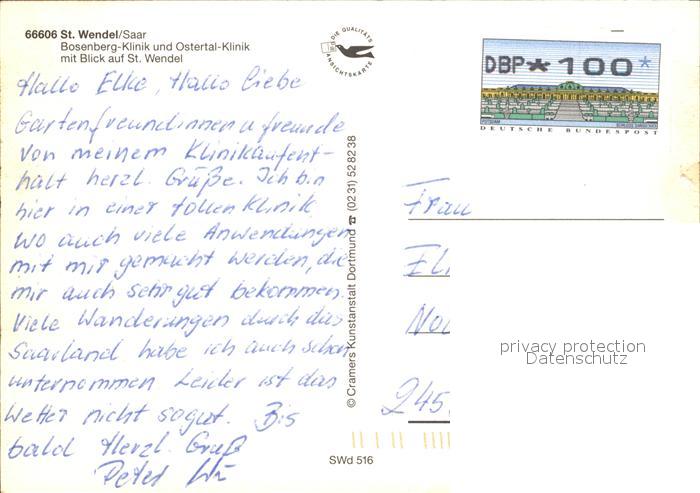 66606 St. Wendel/Saar
Bosenberg-Klinik und Ostertal-Klinik
mit Blick auf St. Wendel
DIE QUALITÄTS
ANSICHTSKARTE
DBP*100*
POTSDAM
DEUTSCHE BUNDESPOST
Hallo Elke, Hallo liebe
Gartenfreundinnen u freunde
Von meinem Klinikaufent-
halt herzl. Grüße. Ich bin
hier in einer tollen Klinik
wo auch viele Anwendungen
mit mir gemacht werden, die
mir auch sehr gut bekommen.
Viele Wanderungen durch das
Saarland habe ich auch schon
unternommen Leider ist das
Wetter nicht so gut. Bis
bald Herzl. Gruß
Peter
© Cramers Kunstanstalt Dortmund ☎ (02 31) 52 82 38
Frau
245
privacy protection
Datenschutz
SWd 516